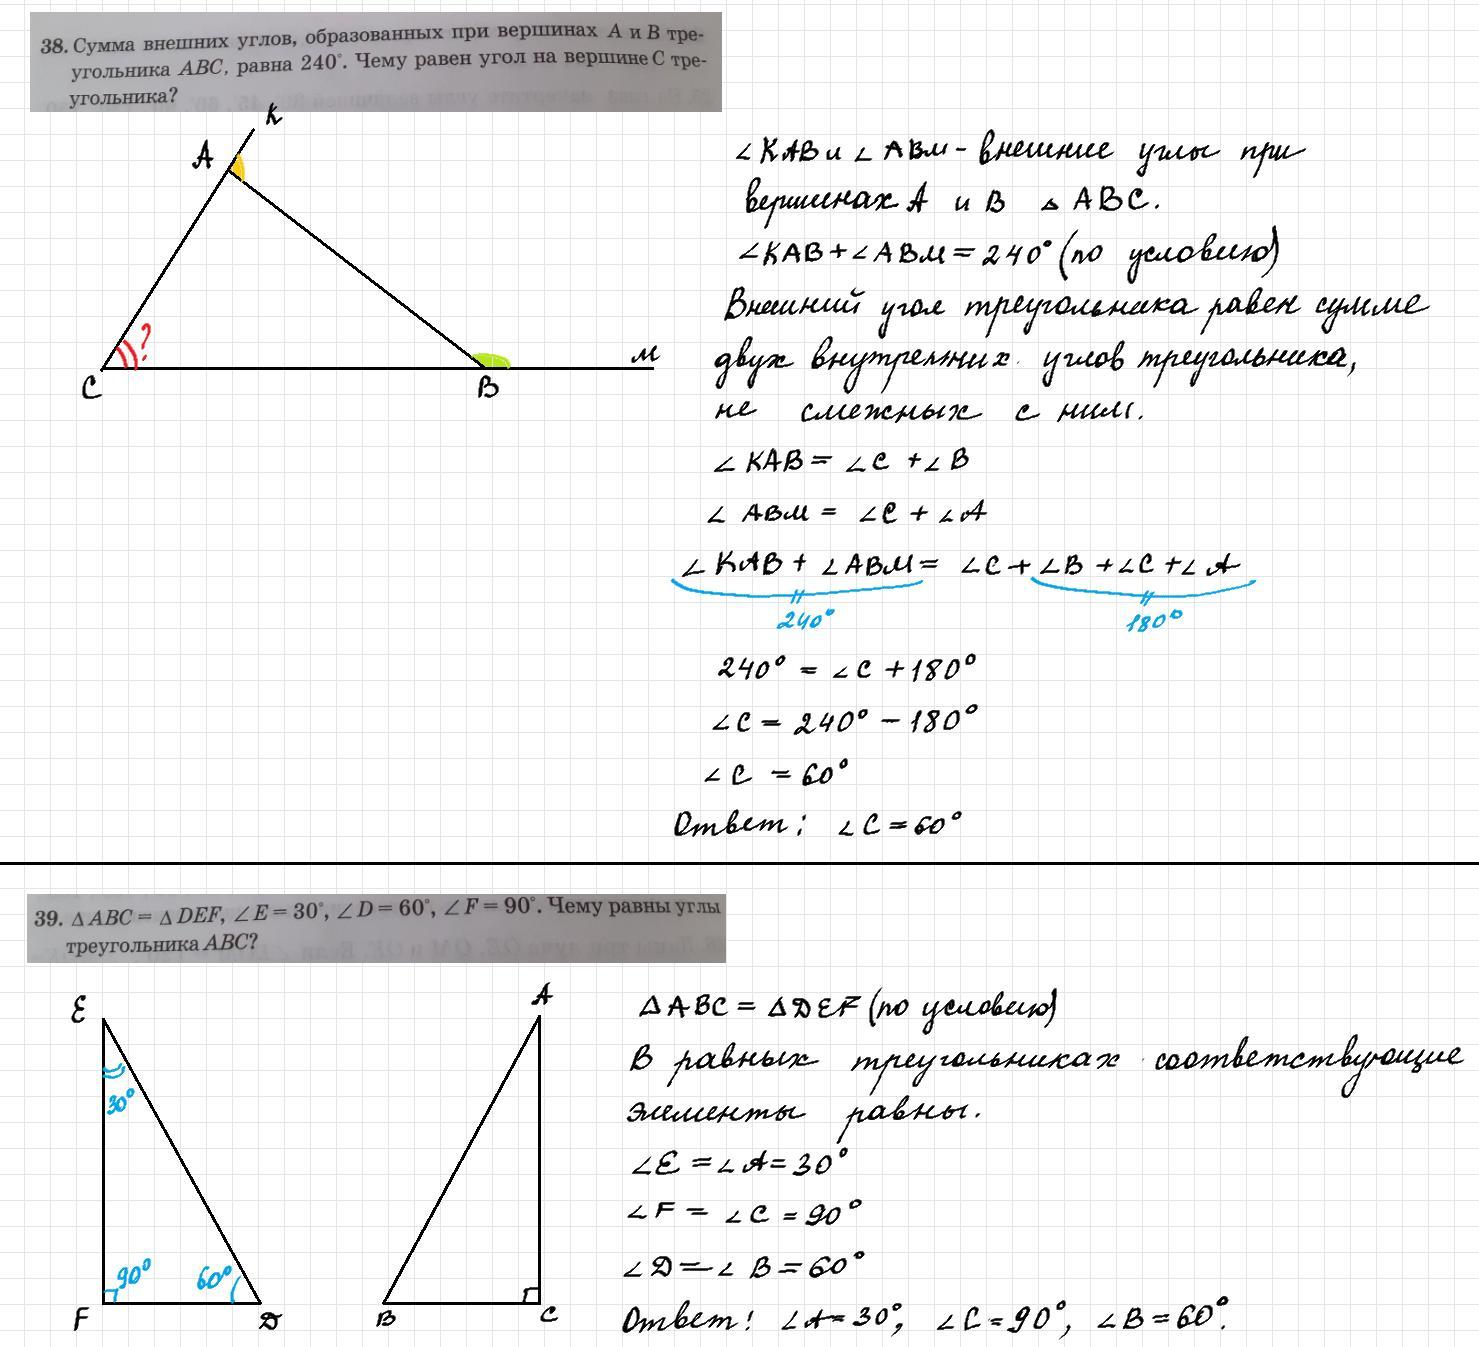 38. Сумма внешних углов, образованных при вершинах A и B тре-
угольника ABC, равна 240°. Чему равен угол на вершине C тре-
угольника?
K
A
?
C
B
M
∠KAB и ∠ABM - внешние углы при
вершинах A и B △ABC.
∠KAB + ∠ABM = 240° (по условию)
Внешний угол треугольника равен сумме
двух внутренних углов треугольника,
не смежных с ним.
∠KAB = ∠C + ∠B
∠ABM = ∠C + ∠A
∠KAB + ∠ABM = ∠C + ∠B + ∠C + ∠A
240° 180°
240° = ∠C + 180°
∠C = 240° - 180°
∠C = 60°
Ответ: ∠C = 60°
39. △ABC = △DEF, ∠E = 30°, ∠D = 60°, ∠F = 90°. Чему равны углы
треугольника ABC?
E
30°
90° 60°
F D
A
B C
△ABC = △DEF (по условию)
В равных треугольниках соответствующие
элементы равны.
∠E = ∠A = 30°
∠F = ∠C = 90°
∠D = ∠B = 60°
Ответ: ∠A = 30°, ∠C = 90°, ∠B = 60°.